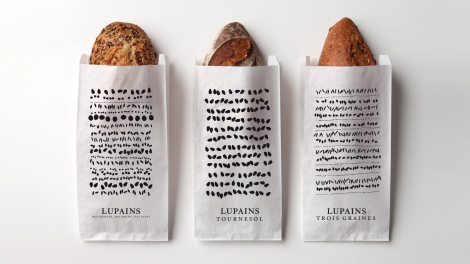 LUPAINS
LUPAINS
TOURNESOL
LUPAINS
TROIS GRAINES